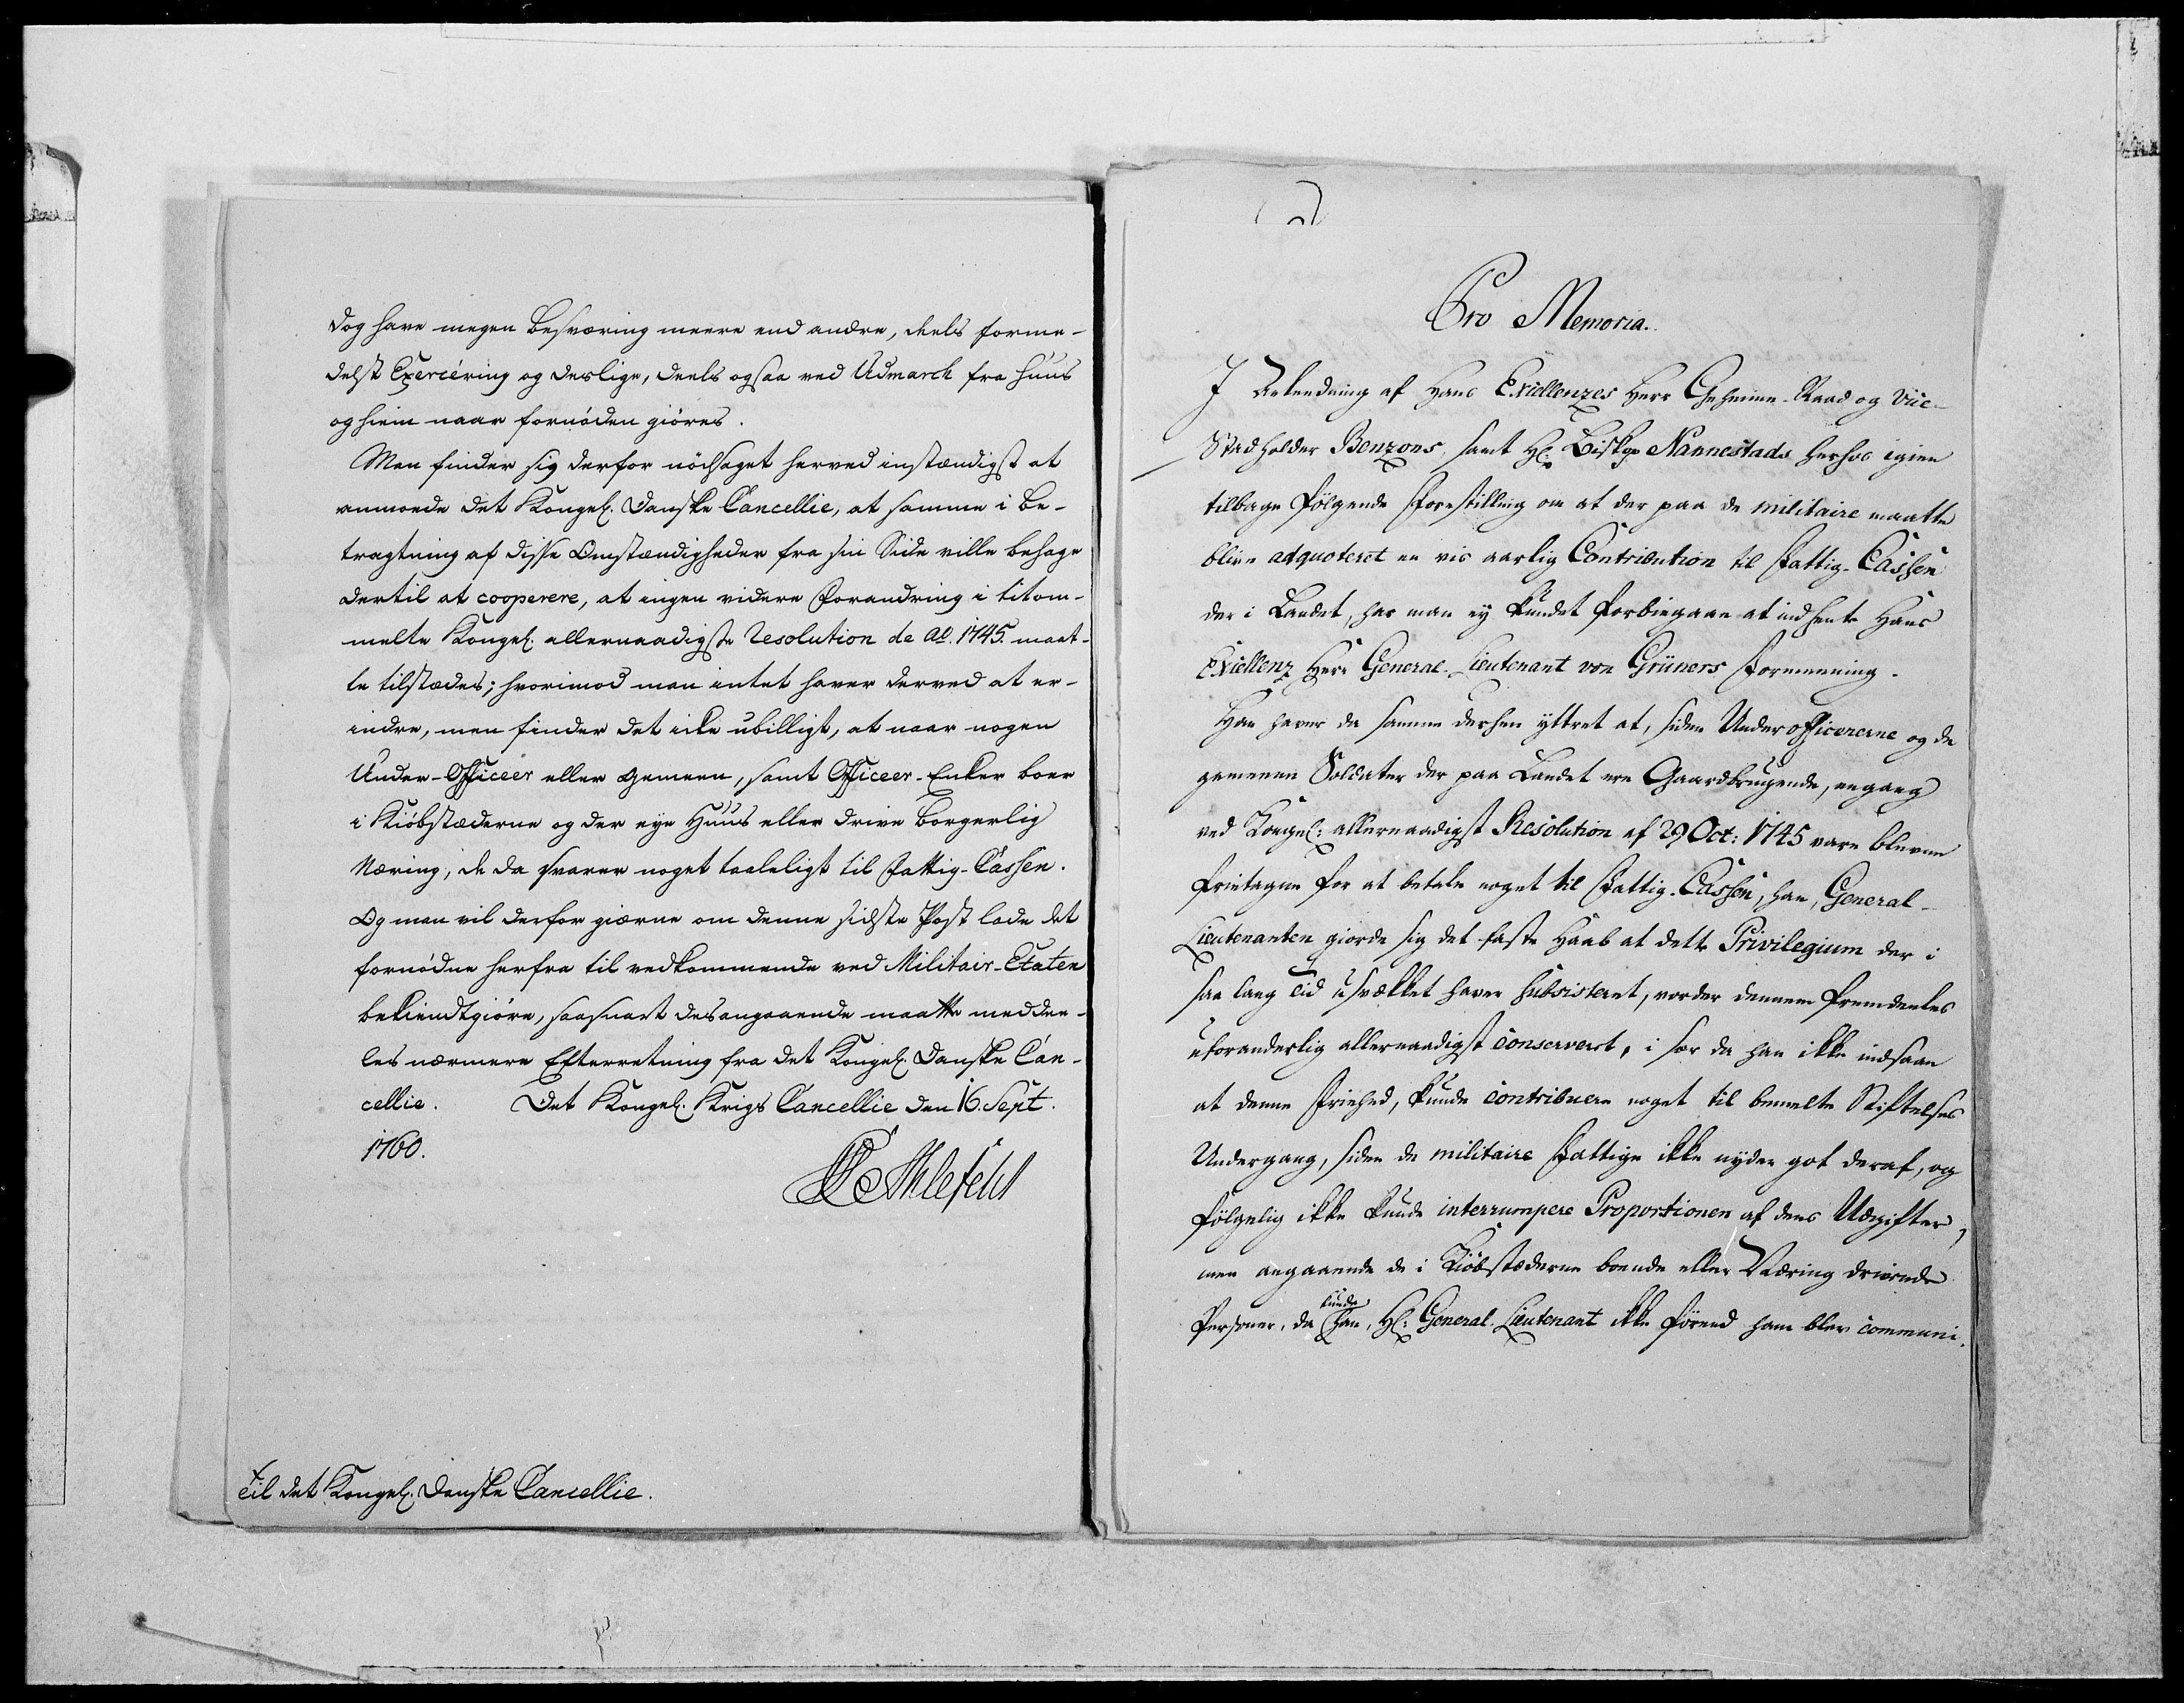 dog have megen besværing meere end andre, deels forme-
delst Exercéring og deslige, deels ogsaa ved Udmarch fra huus
og hiem naar fornöden giöres.
Man finder sig derfor nödsaget herved instændigst at
anmoede det Kongel. Danske Cancellie, at samme i be-
tragtning af disse Omstændigheder fra sin Side ville behage
dertil at cooperere, at ingen videre Forandring i titom-
melte Kongel. allernaadigste Resolution de Ao. 1745. maat-
te tilstædes; hvorimod man intet haver derved at er-
indre, men finder det icke ubilligt, at naar nogen
Under-Officeer eller Gemeen, samt Officeer-Enker boer
i Kiöbstæderne og der eye Huus eller drive borgerlig
Næring, de da svarer noget taaleligt til Fattig-Cassen.
Og man vil derfor gierne om denne sidste Post lade det
fornödne herfra til vedkommende ved Militair-Etaten
bekiendtgiöre, saasnart desangaaende maatte meddee-
les nærmere Efterretning fra det Kongel. Danske Can-
cellie. Det Kongel. Krigs Cancellie den 16. Sept.
1760.
Ahlefeldt
Til det Kongel. Danske Cancellie.
Pro Memoria.
I Anledning af Hans Excellenzes Herr Geheime-Raad og Vice-
Stadholder Benzons, samt Hr: Biskop Nannestads herhos igien
tilbage fölgende Forestilling om at der paa de militaire maatte
blive adquoteret en vis aarlig Contribution til Fattig-Cassen
der i Landet, har man ey kundet forbiegaae at indhente Hans
Excellenz Herr General-Lieutenant von Grüners Formeening.
Han haver da samme derhen yttret at, siden Underofficererne og de
gemeene Soldater der paa Landet ere Gaardbrugende, engang
ved Kongel: allernaadigst Resolution af 29 Oct: 1745 vare blevne
frietagne for at betale noget til Fattig-Cassen, han, General-
Lieutenanten giorde sig det faste Haab at dette Privilegium der i
saa lang Tid usvækket haver subsisteret, vorder dennem fremdeeles
uforanderlig allernaadigst conserveret, i sær da han ikke indsaae
at denne Friehed, kunde contribuere noget til bemelte Stiftelses
Undergang, siden de militaire Fattige ikke nyder got deraf, og
fölgelig ikke kunde interrumpere Proportionen af dens Udgifter,
men angaaende de i Kiöbstæderne boende eller Næring drivende
Personer, da kunde han, Hr: General-Lieutenant ikke förend ham blev communi-